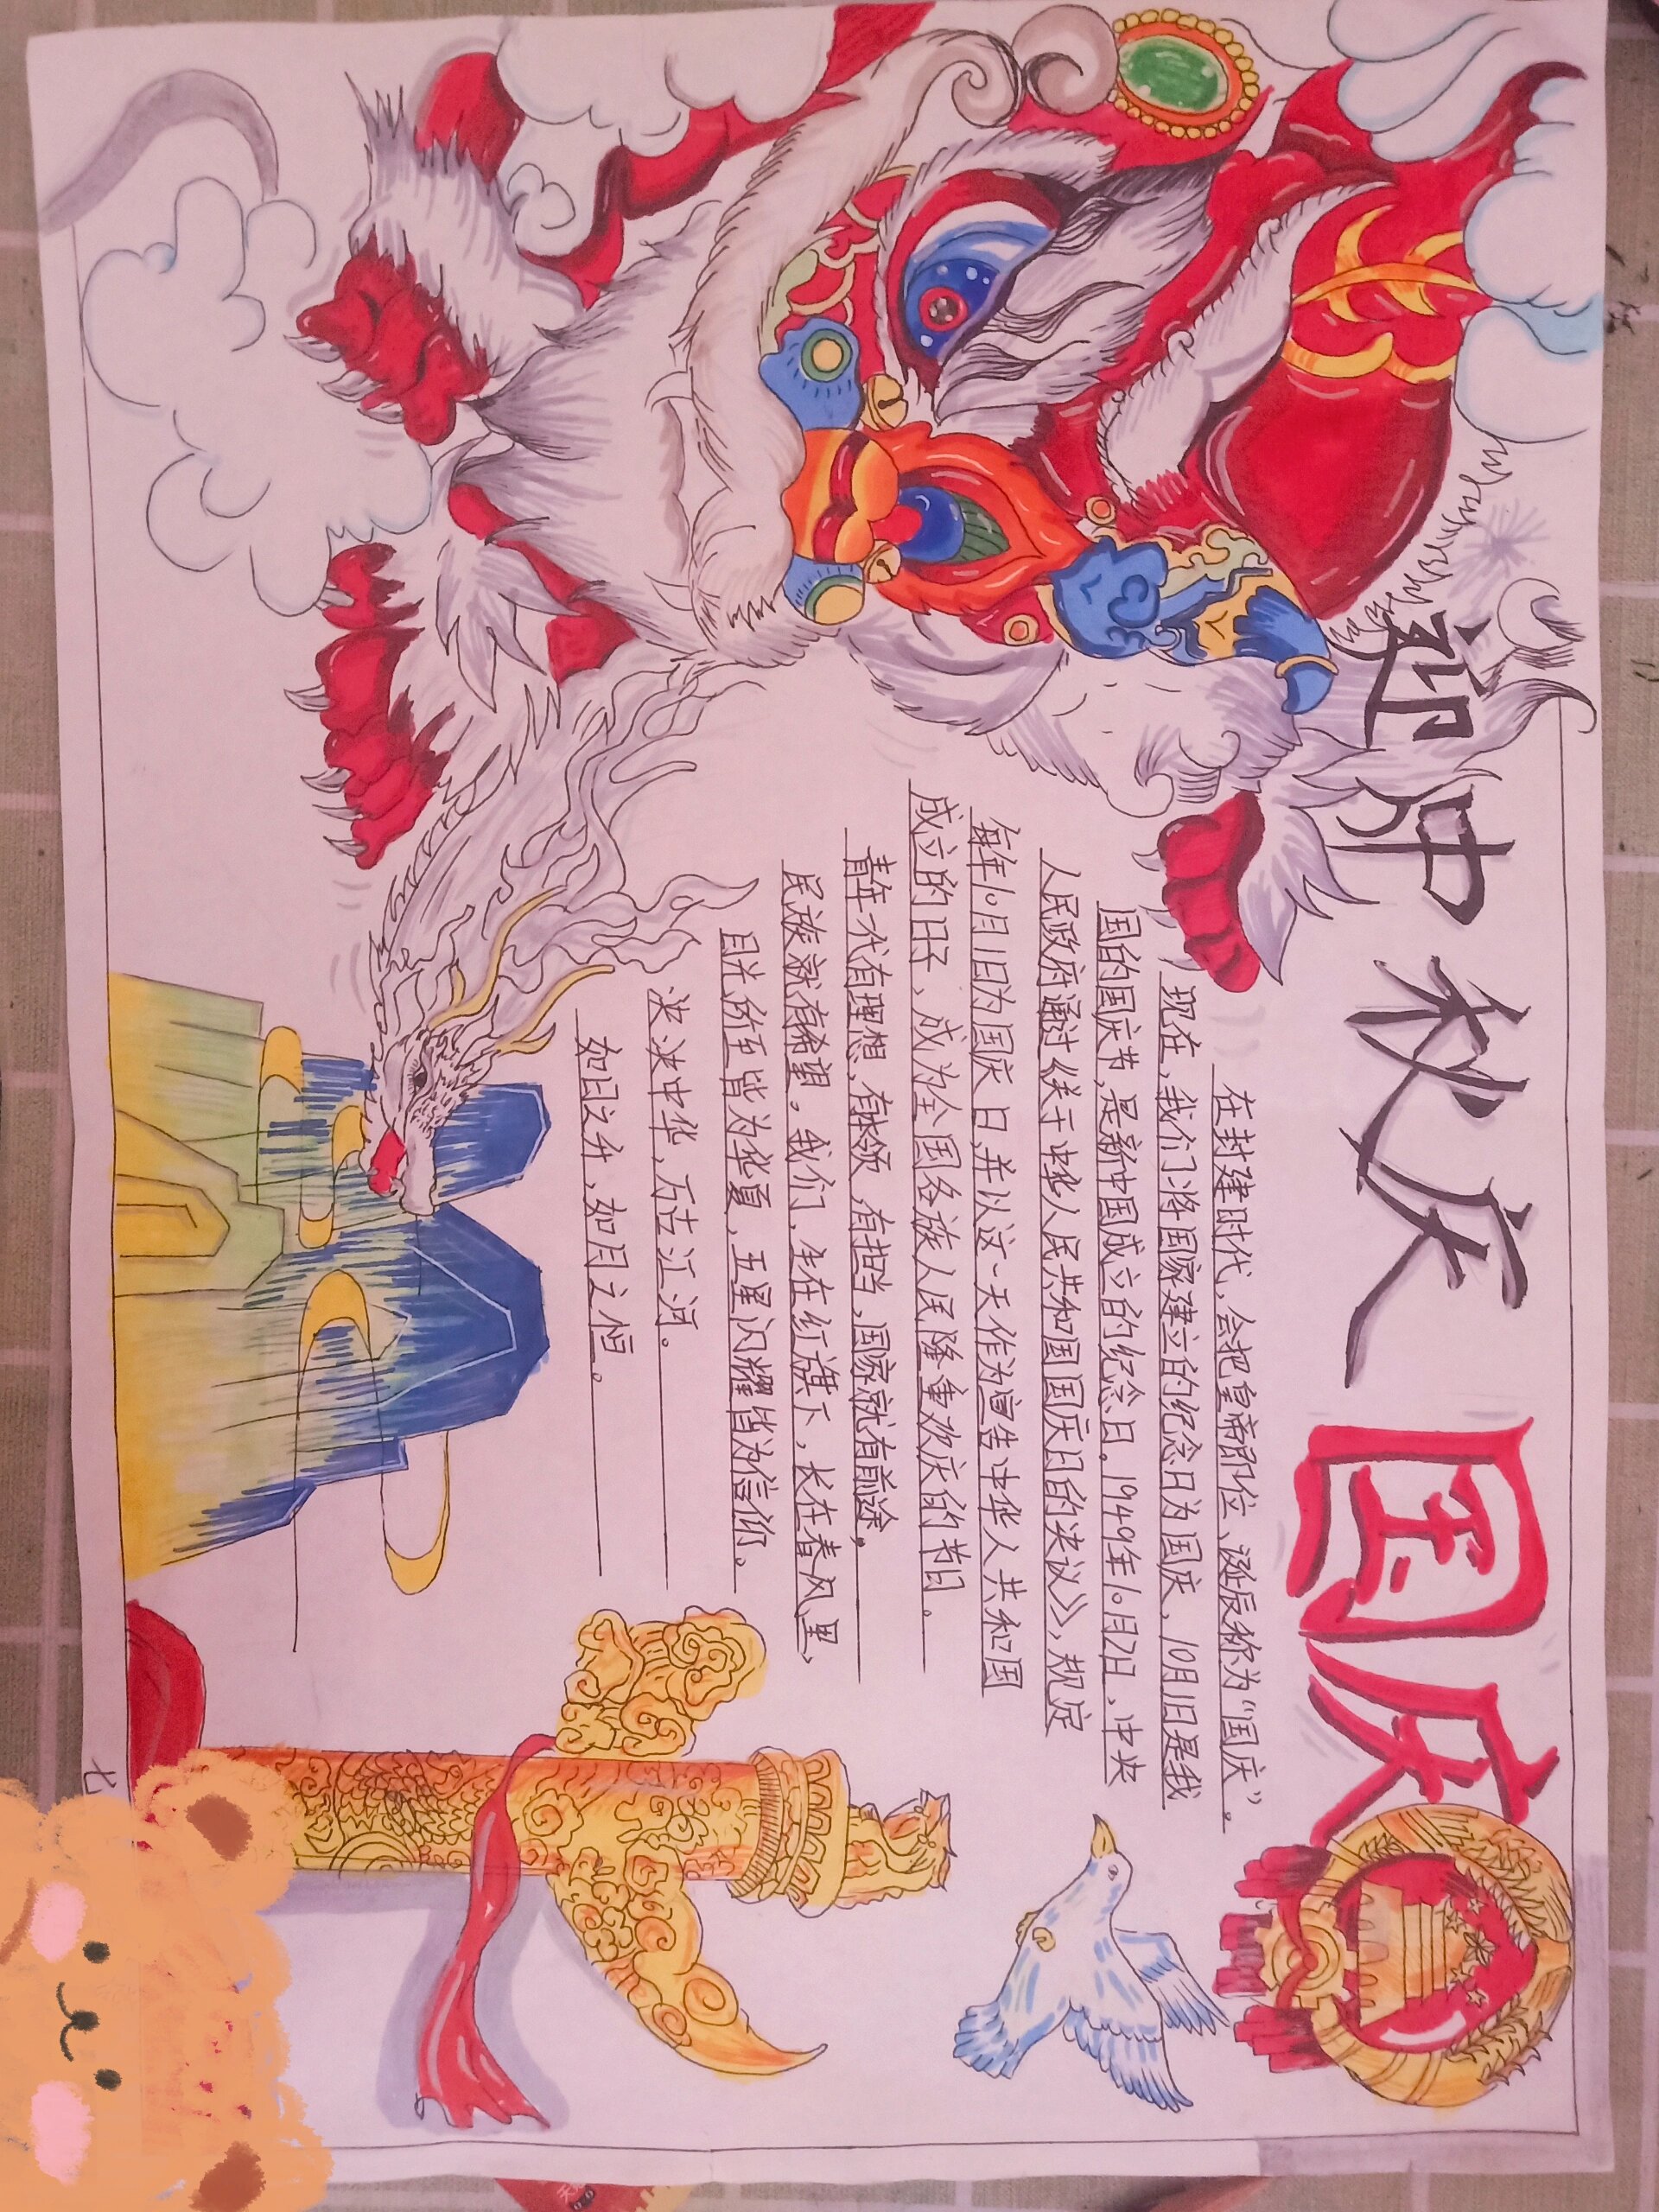 迎仲秋庆国庆
在封建时代,会把皇帝即位、诞辰称为“国庆”。
现在,我们将国家建立的纪念日为国庆,10月1日是我
国的国庆节,是新中国成立的纪念日。1949年10月2日,中央
人民政府通过《关于中华人民共和国国庆日的决议》,规定
每年10月1日为国庆日,并以这一天作为宣告中华人民共和国
成立的日子,成为全国各族人民隆重欢庆的节日。
青年一代有理想,有本领,有担当,国家就有前途,
民族就有希望。我们,生在红旗下,长在春风里,
目光所至皆为华夏,五星闪耀皆为信仰。
泱泱中华,万古江河。
如日之升,如月之恒。
七